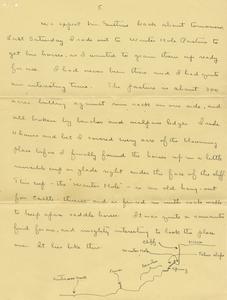 5
we expect Jim Smithers back about tomorrow
Last Saturday I rode out to Winter Hole Pasture to
get his horses, as I wanted to grain them up ready
for use. I had never been there and I had quite
an interesting time. The pasture is about 300
acres butting against rim rock on one side, and
all broken by benches and malpais ledges. I rode
4 hours and but I covered every acre of the blooming
place before I finally found the horses up in a little
invisible cup or glade right under the face of the cliff.
This cup - the "Winter Hole" - is an old hang-out
for cattle thieves and is fenced in with rock walls
to keep up a saddle horse. It was quite a romantic
find for me, and mighty interesting to look the place
over. It lies like this:
cliffs
Winter Hole
Fence
Spring